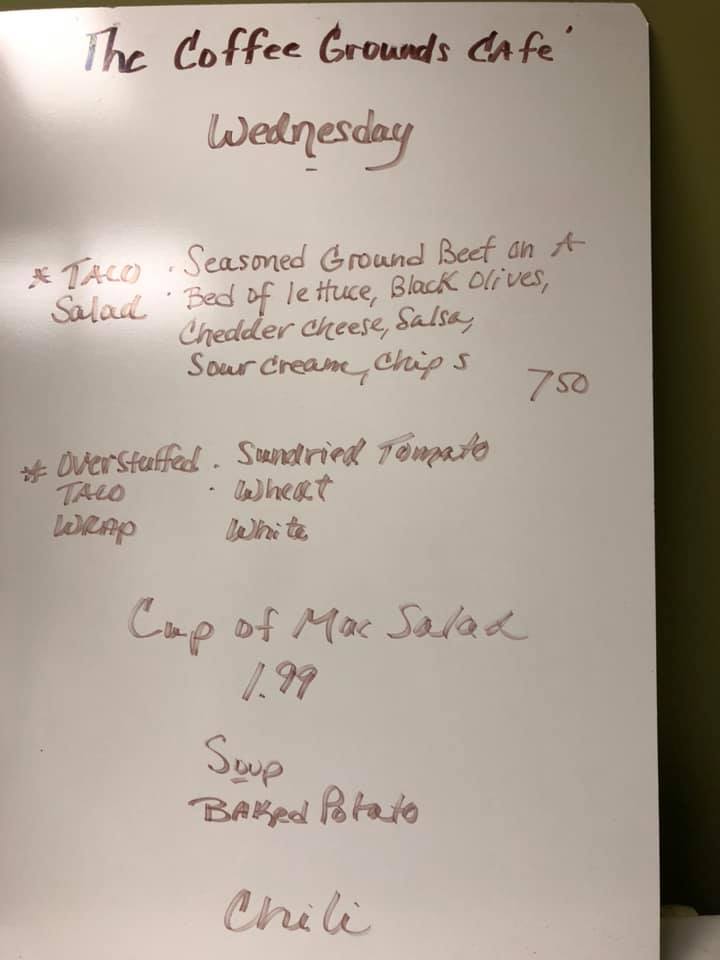 The Coffee Grounds CAfe'
Wednesday
* TACO · Seasoned Ground Beef on A
Salad · Bed of lettuce, Black Olives,
Chedder cheese, Salsa,
Sour cream, Chips
750
* OverStuffed . Sundried Tomato
TACO · Wheat
WRAP White
Cup of Mac Salad
1.99
Soup
BAKed Potato
Chili